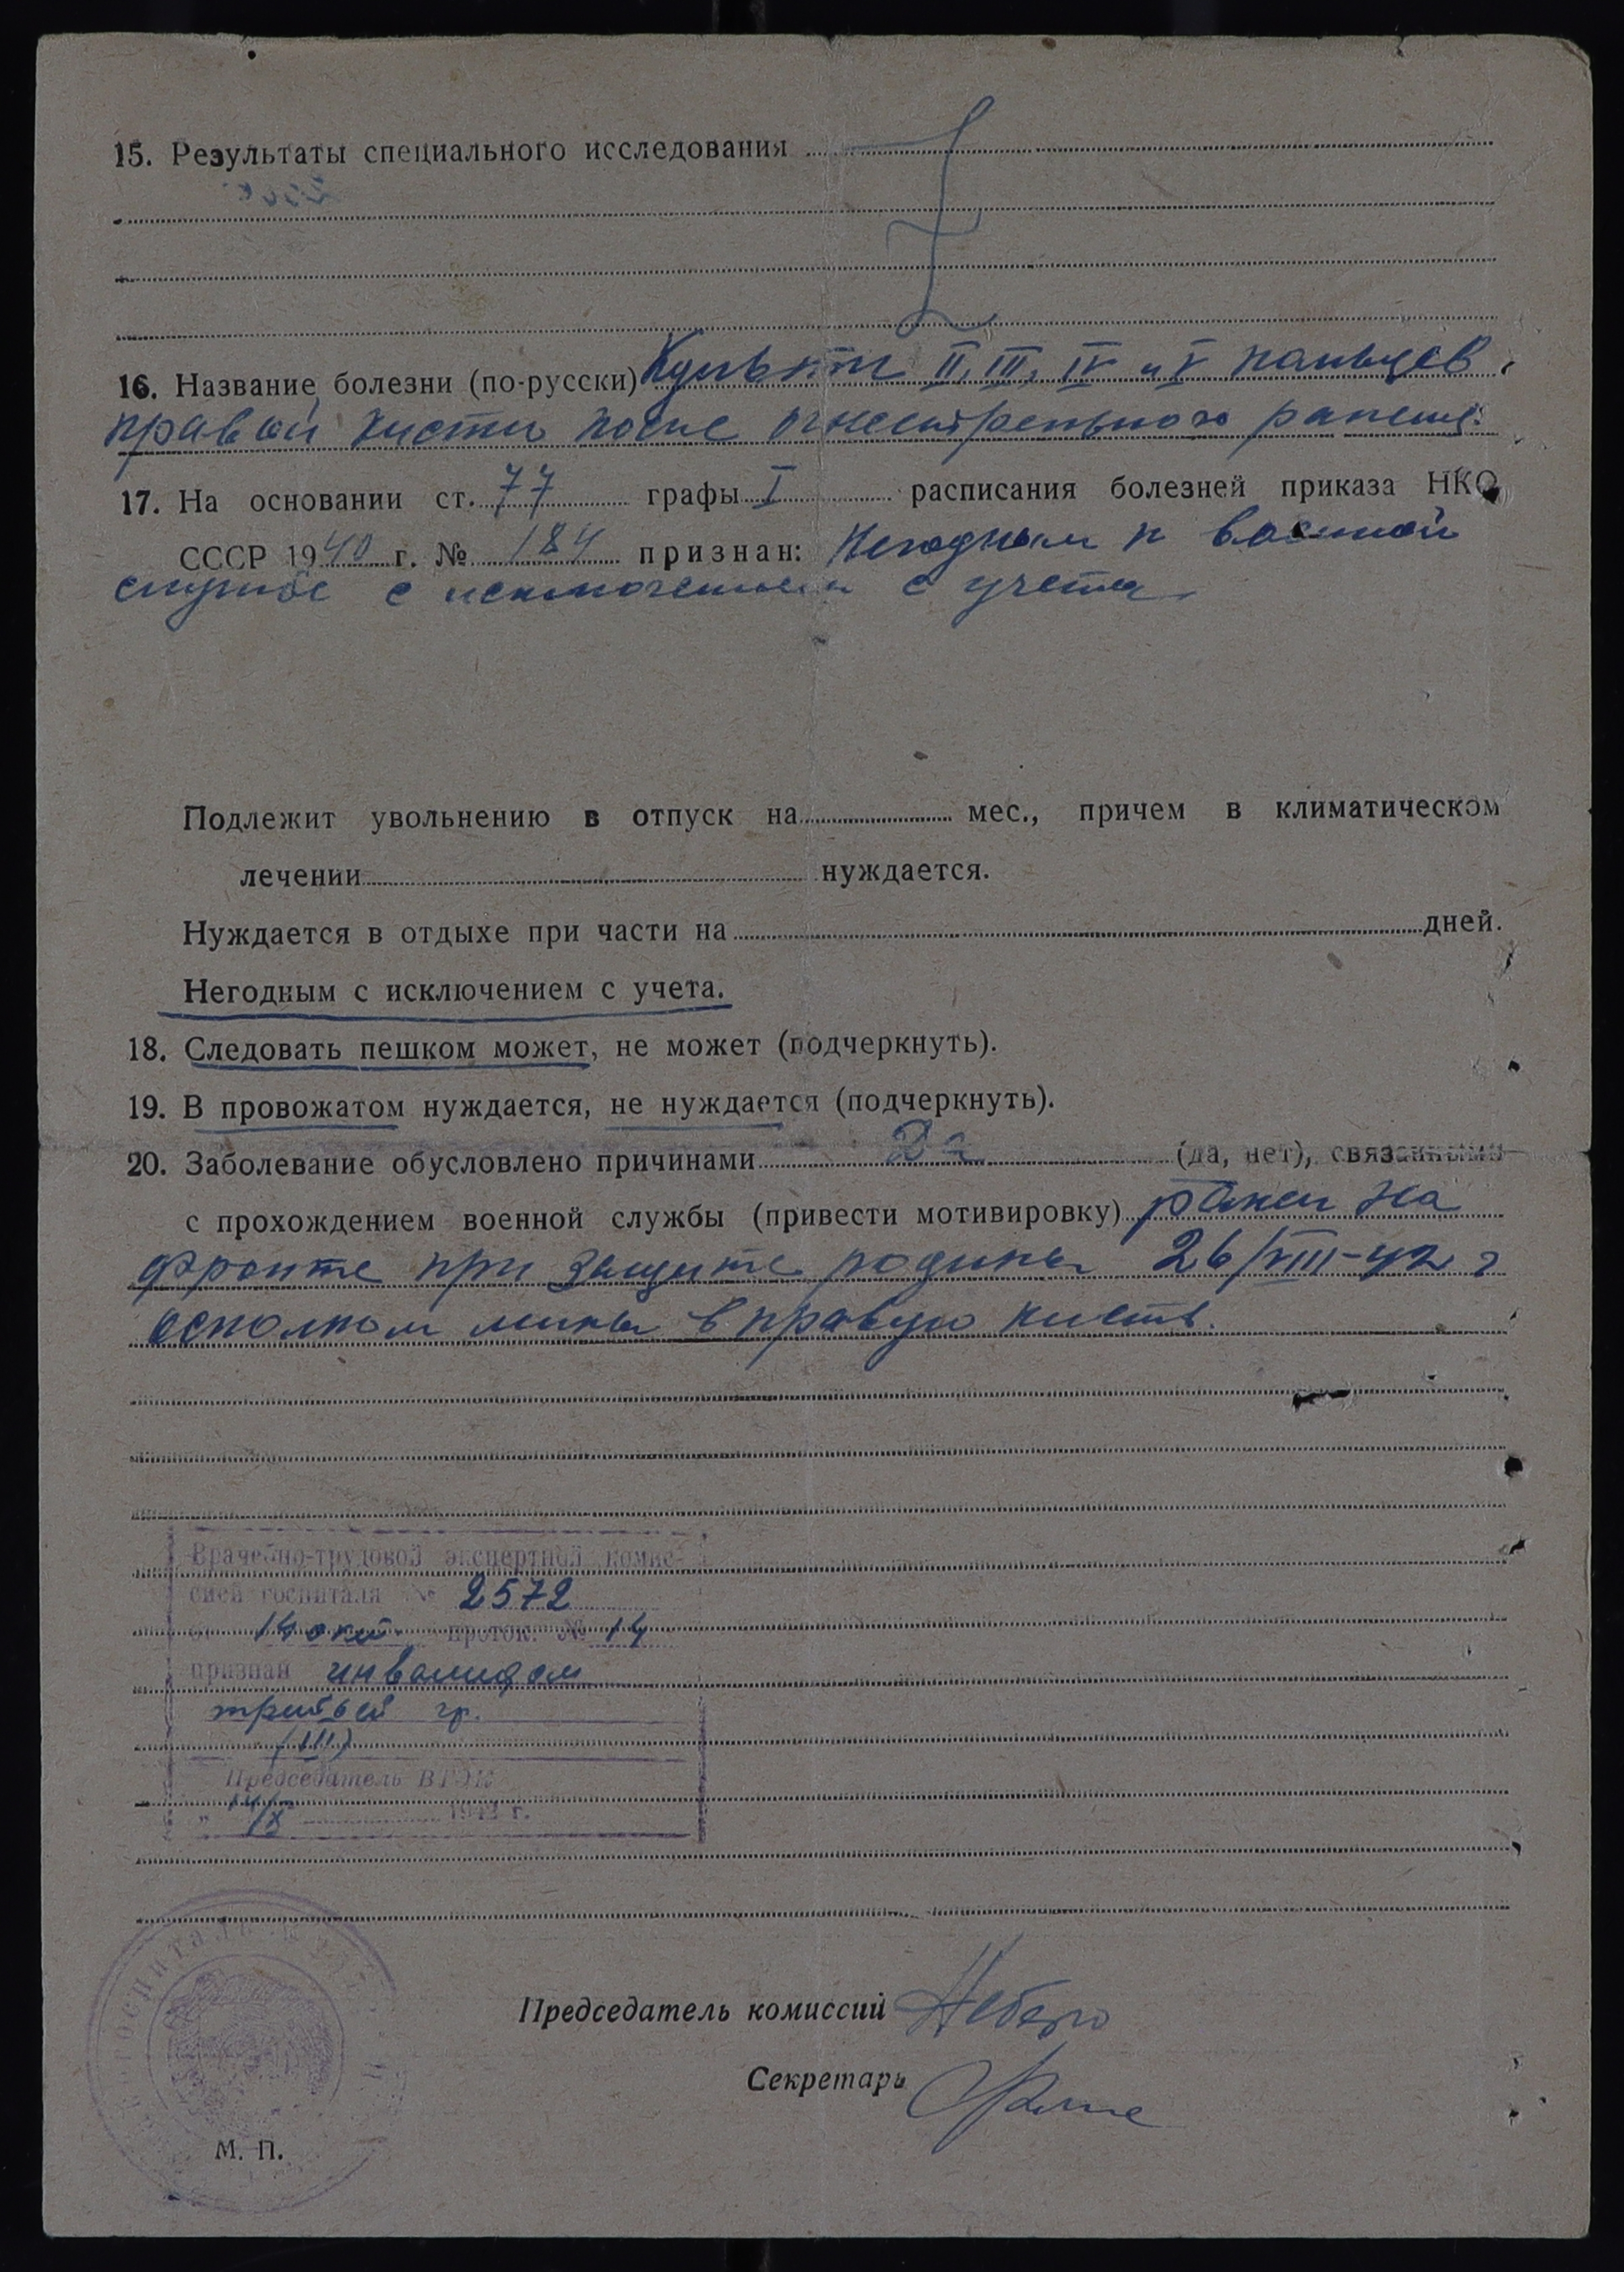 15. Результаты специального исследования
16. Название болезни (по-русски) Культи II, III, IV и V пальцев
правой кисти после огнестрельного ранения.
17. На основании ст. 77 графы I расписания болезней приказа НКО
СССР 1940 г. № 184 признан: Негодным к военной
службе с исключением с учета.
Подлежит увольнению в отпуск на мес., причем в климатическом
лечении нуждается.
Нуждается в отдыхе при части на дней.
Негодным с исключением с учета.
18. Следовать пешком может, не может (подчеркнуть).
19. В провожатом нуждается, не нуждается (подчеркнуть).
20. Заболевание обусловлено причинами Да (да, нет), связанными
с прохождением военной службы (привести мотивировку) ранен на
фронте при защите родины 26/VIII-42 г
осколком мины в правую кисть.
Врачебно-трудовой экспертной комис-
сией госпиталя № 2572
от 14 окт проток. № 14
признан инвалидом
третьей гр.
(III)
Председатель ВТЭК
" 14/X 1942 г.
Председатель комиссий
Секретарь
М. П.